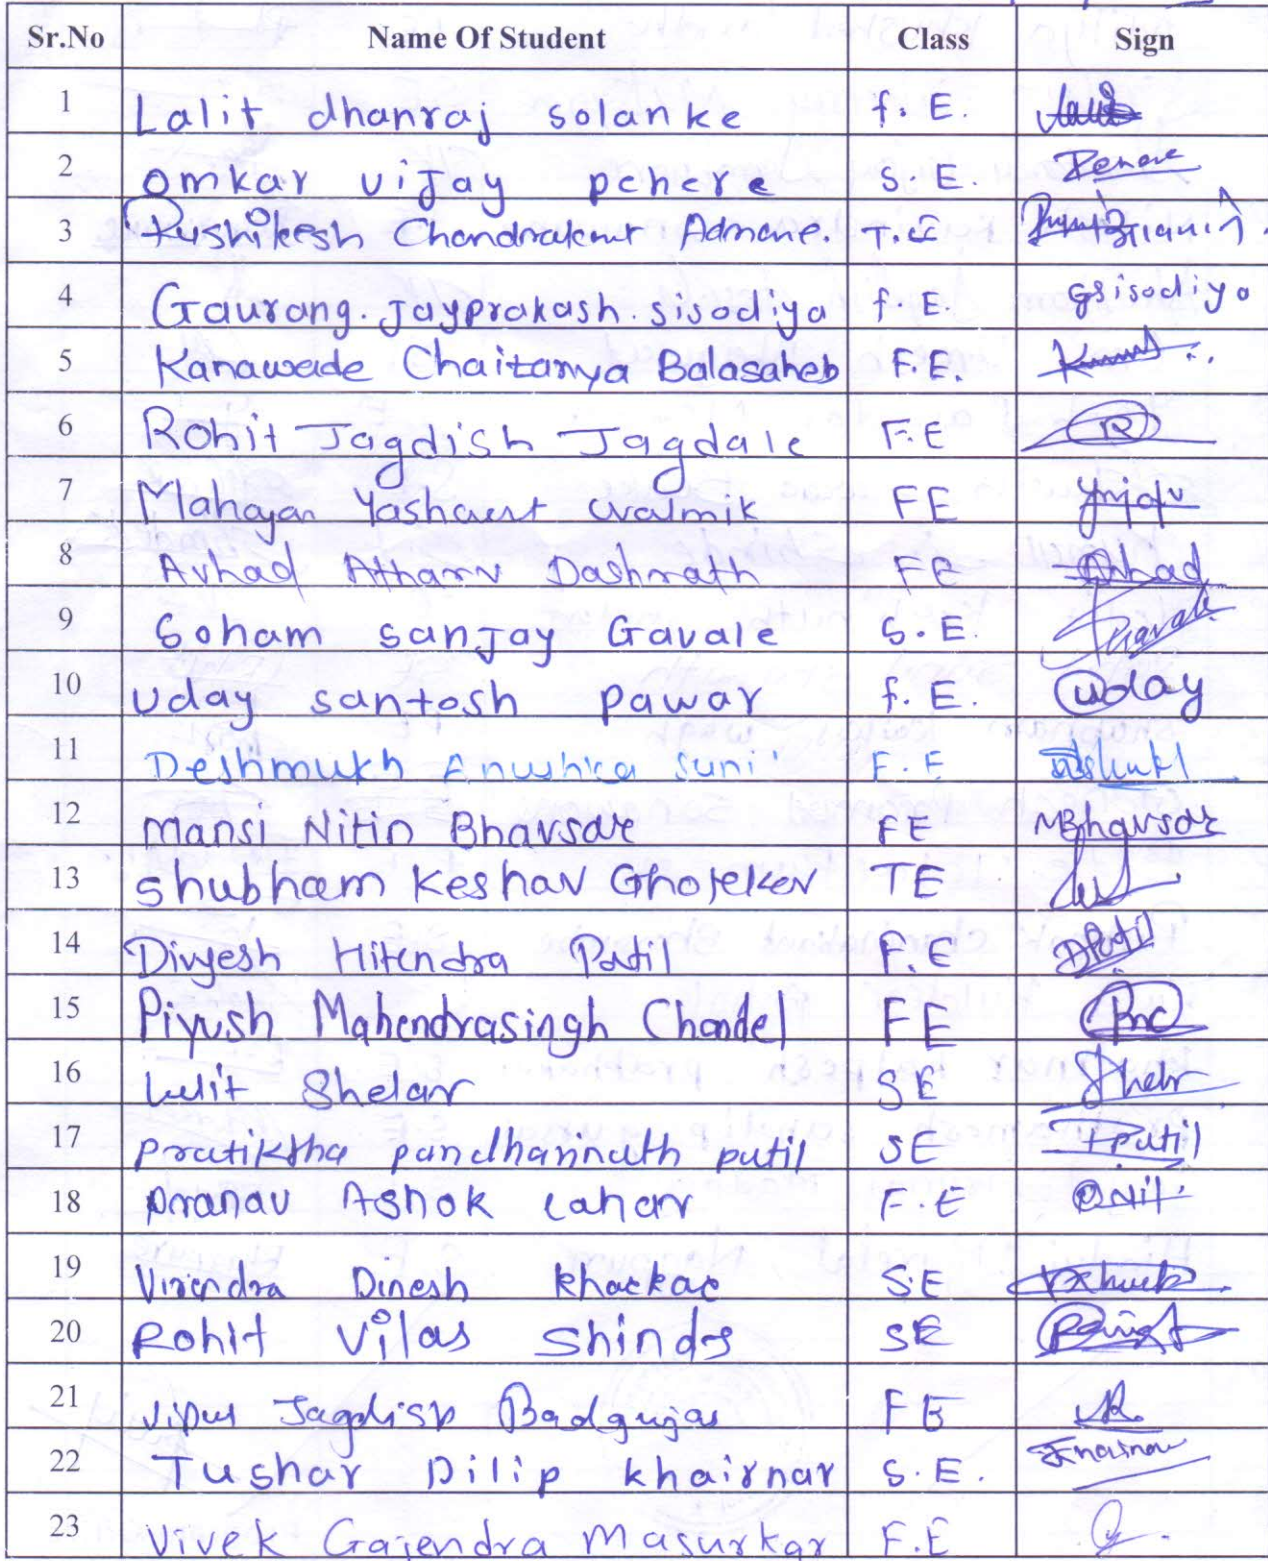 Sr.No Name Of Student Class Sign
1 Lalit dhanraj solanke f. E.
2 Omkar vijay pehere S. E.
3 Rushikesh Chandrakant Admane T.E
4 Gaurang. Jayprakash. sisodiya f. E. gsisodiya
5 Kanawade Chaitanya Balasaheb F.E.
6 Rohit Jagdish Jagdale F.E R
7 Mahajan Yashavant Walmik FE
8 Avhad Atharv Dashrath FE Avhad
9 Soham sanjay Gavale S.E. Gavale
10 Uday santosh pawar f. E. uday
11 Deshmukh Anushka Sunil F.E
12 Mansi Nitin Bhavsar FE MBhavsar
13 Shubham Keshav Ghotekar TE
14 Divyesh Hitendra Patil F.E DPatil
15 Piyush Mahendrasingh Chandel FE PMC
16 Lalit Shelar SE
17 Pratiksha pandharinath patil SE Ppatil
18 Pranav Ashok Lahare F.E
19 Virendra Dinesh Khackac SE
20 Rohit Vilas Shinde SE
21 Vipul Jagdish Badgujar FE
22 Tushar Dilip khairnar S.E.
23 Vivek Gajendra Masurkar F.E